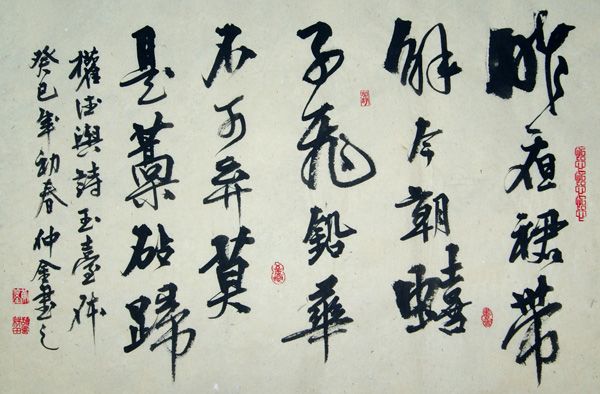 昨夜裙带
解今朝蟢
子飞铅華
不可弃莫
是藁砧歸
權德與詩玉臺体
癸巳年初春仲金書之